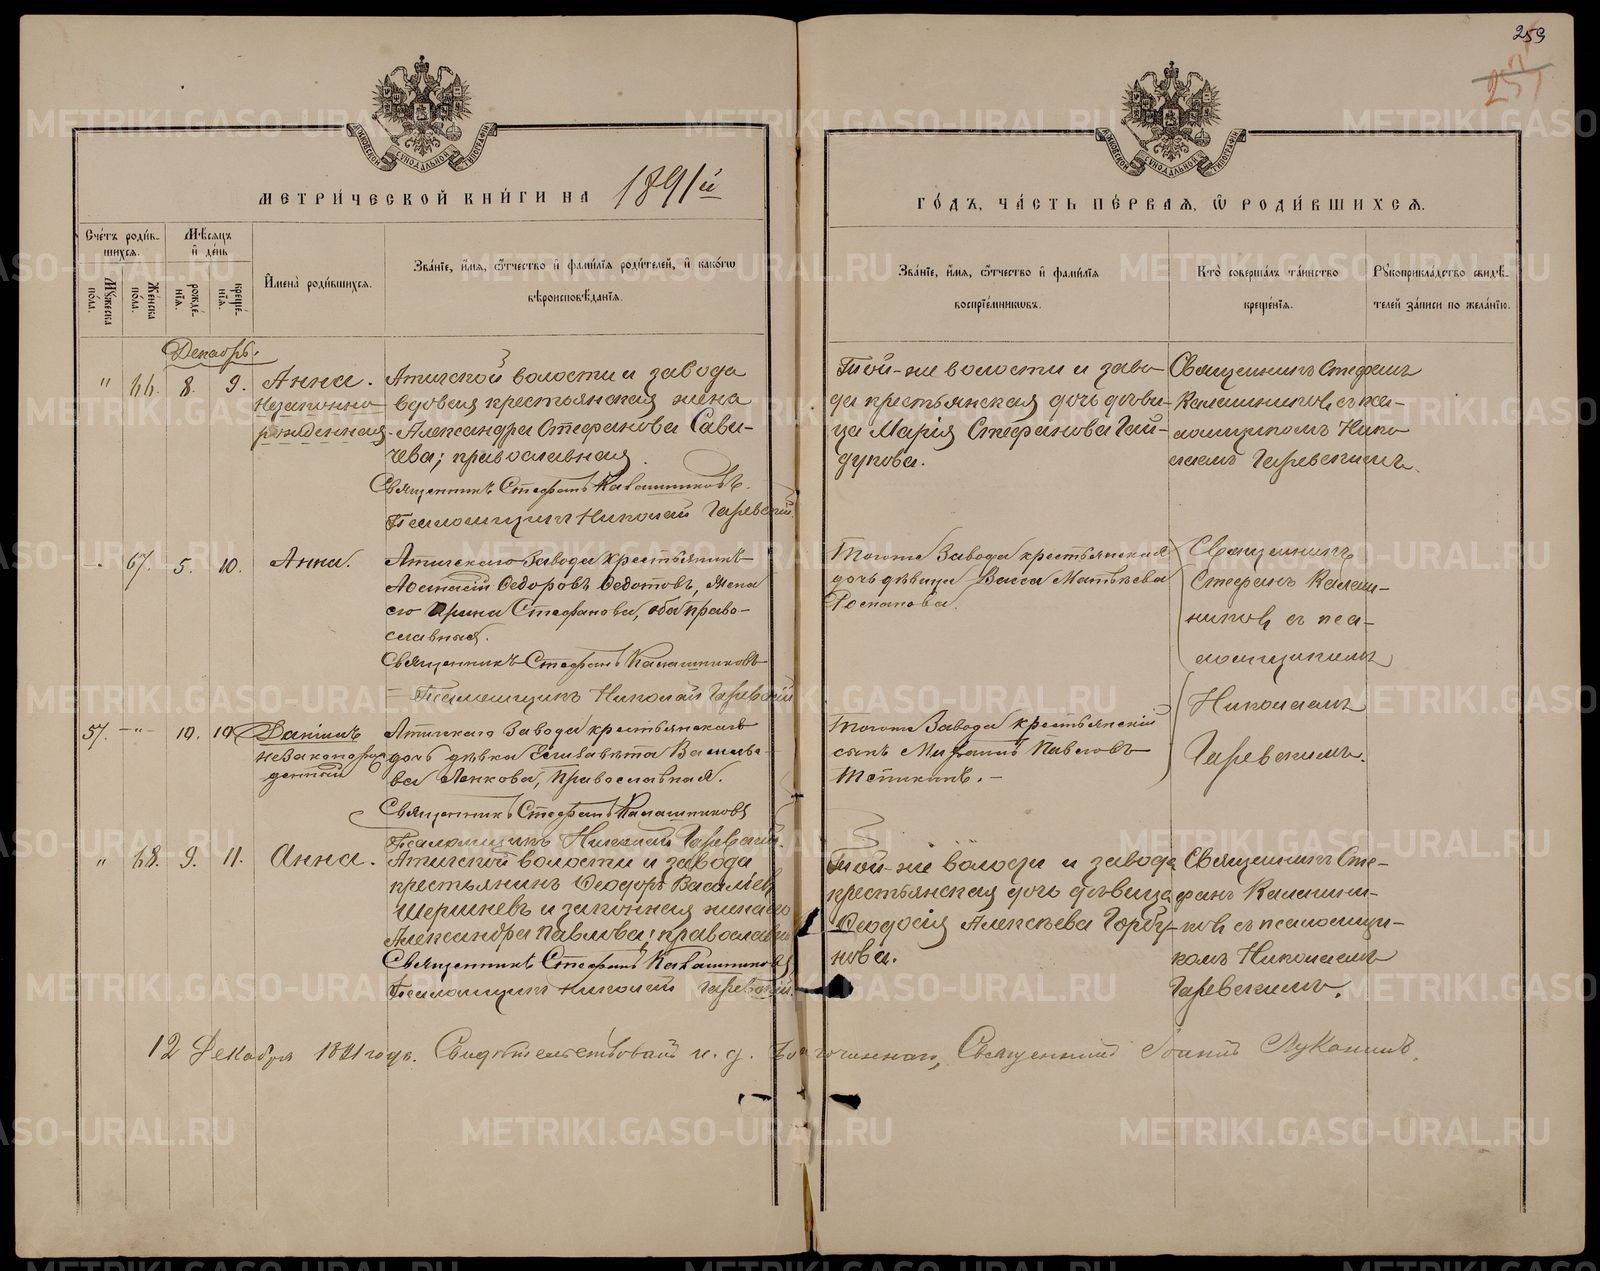 259
251
МОСКОВСКОЙ СУНОДАЛЬНОЙ ТИПОГРАФІИ
МОСКОВСКОЙ СУНОДАЛЬНОЙ ТИПОГРАФІИ
МЕТРИ́ЧЕСКОЙ КНИ́ГИ НА 1891й
ГО́ДЪ, ЧА́СТЬ ПЕ́РВАЯ, Ѿ РОДИ́ВШИХСЯ.
Сче́тъ роди́в-
шихся.
Мѣ́сяцъ
и҆ де́нь
Мꙋ́жеска по́ла.
Же́нска по́ла.
рожде́-
нїя.
креще́-
нїя.
И҆мена̀ роди́вшихся.
Зва́нїе, и҆́мя, ѻ҆́тчество и҆ фами́лїя роди́телей, и҆ како́гѡ
вѣроисповѣ́данїя.
Зва́нїе, и҆́мя, ѻ҆́тчество и҆ фами́лїя
воспрїе́мникѡвъ.
Кто̀ соверша́лъ та́инство
креще́нїя.
Рꙋкоприкла́дство свидѣ́-
телей за́писи по жела́нїю.
Декабрь.
" 66. 8. 9. Анна.
Незаконно-
рожденная
Атигской волости и завода
вдовая крестьянская жена
Александра Стефанова Сави-
чева; православная.
Священникъ Стефанъ Калашниковъ.
Псаломщикъ Николай Гаревскій.
Той-же волости и заво-
да крестьянская дочь дѣви-
ца Марія Стефанова Гай-
дукова.
Священникъ Стефанъ
Калашниковъ съ пса-
ломщикомъ Нико-
лаемъ Гаревскимъ.
67. 5. 10. Анна.
Атигскаго Завода крестьянинъ
Ѳедоровъ Ѳедотовъ, жена
его Ирина Стефанова, оба право-
славныя.
Священникъ Стефанъ Калашниковъ
Псаломщикъ Николай Гаревскій
Тогоже Завода крестьянская
дочь дѣвица Васса Матвѣева
Священникъ
Стефанъ Калаш-
никовъ съ пса-
ломщикомъ
Николаемъ
Гаревскимъ.
57. -"- 10. 10. Даніилъ
незаконорож
денный
Атигскаго Завода крестьянскаго
дочь дѣвка Елизавѣта Василье-
ва Пенкова, Православная.
Священникъ Стефанъ Калашниковъ
Псаломщикъ Николай Гаревскій.
Тогоже Завода крестьянскій
сынъ Михаилъ Павловъ
" 68. 9. 11. Анна.
Атигской волости и завода
крестьянинъ Ѳеодоръ Васильевъ
Шершневъ и законная жена его
Александра Павлова; православн
Священникъ Стефанъ Калашниковъ
Псаломщикъ Николай Гаревскій.
Той-же волости и завода
крестьянская дочь дѣвица
Ѳеодосія Алексѣева Горбу-
нова.
Священникъ Сте-
фанъ Калашни-
ковъ съ псаломщи-
комъ Николаемъ
Гаревскимъ.
12 Декабря 1891 года. Свидѣтельствовалъ и. д. Благочиннаго, Священникъ Іоаннъ Луканинъ.
METRIKI.GASO-URAL.RU